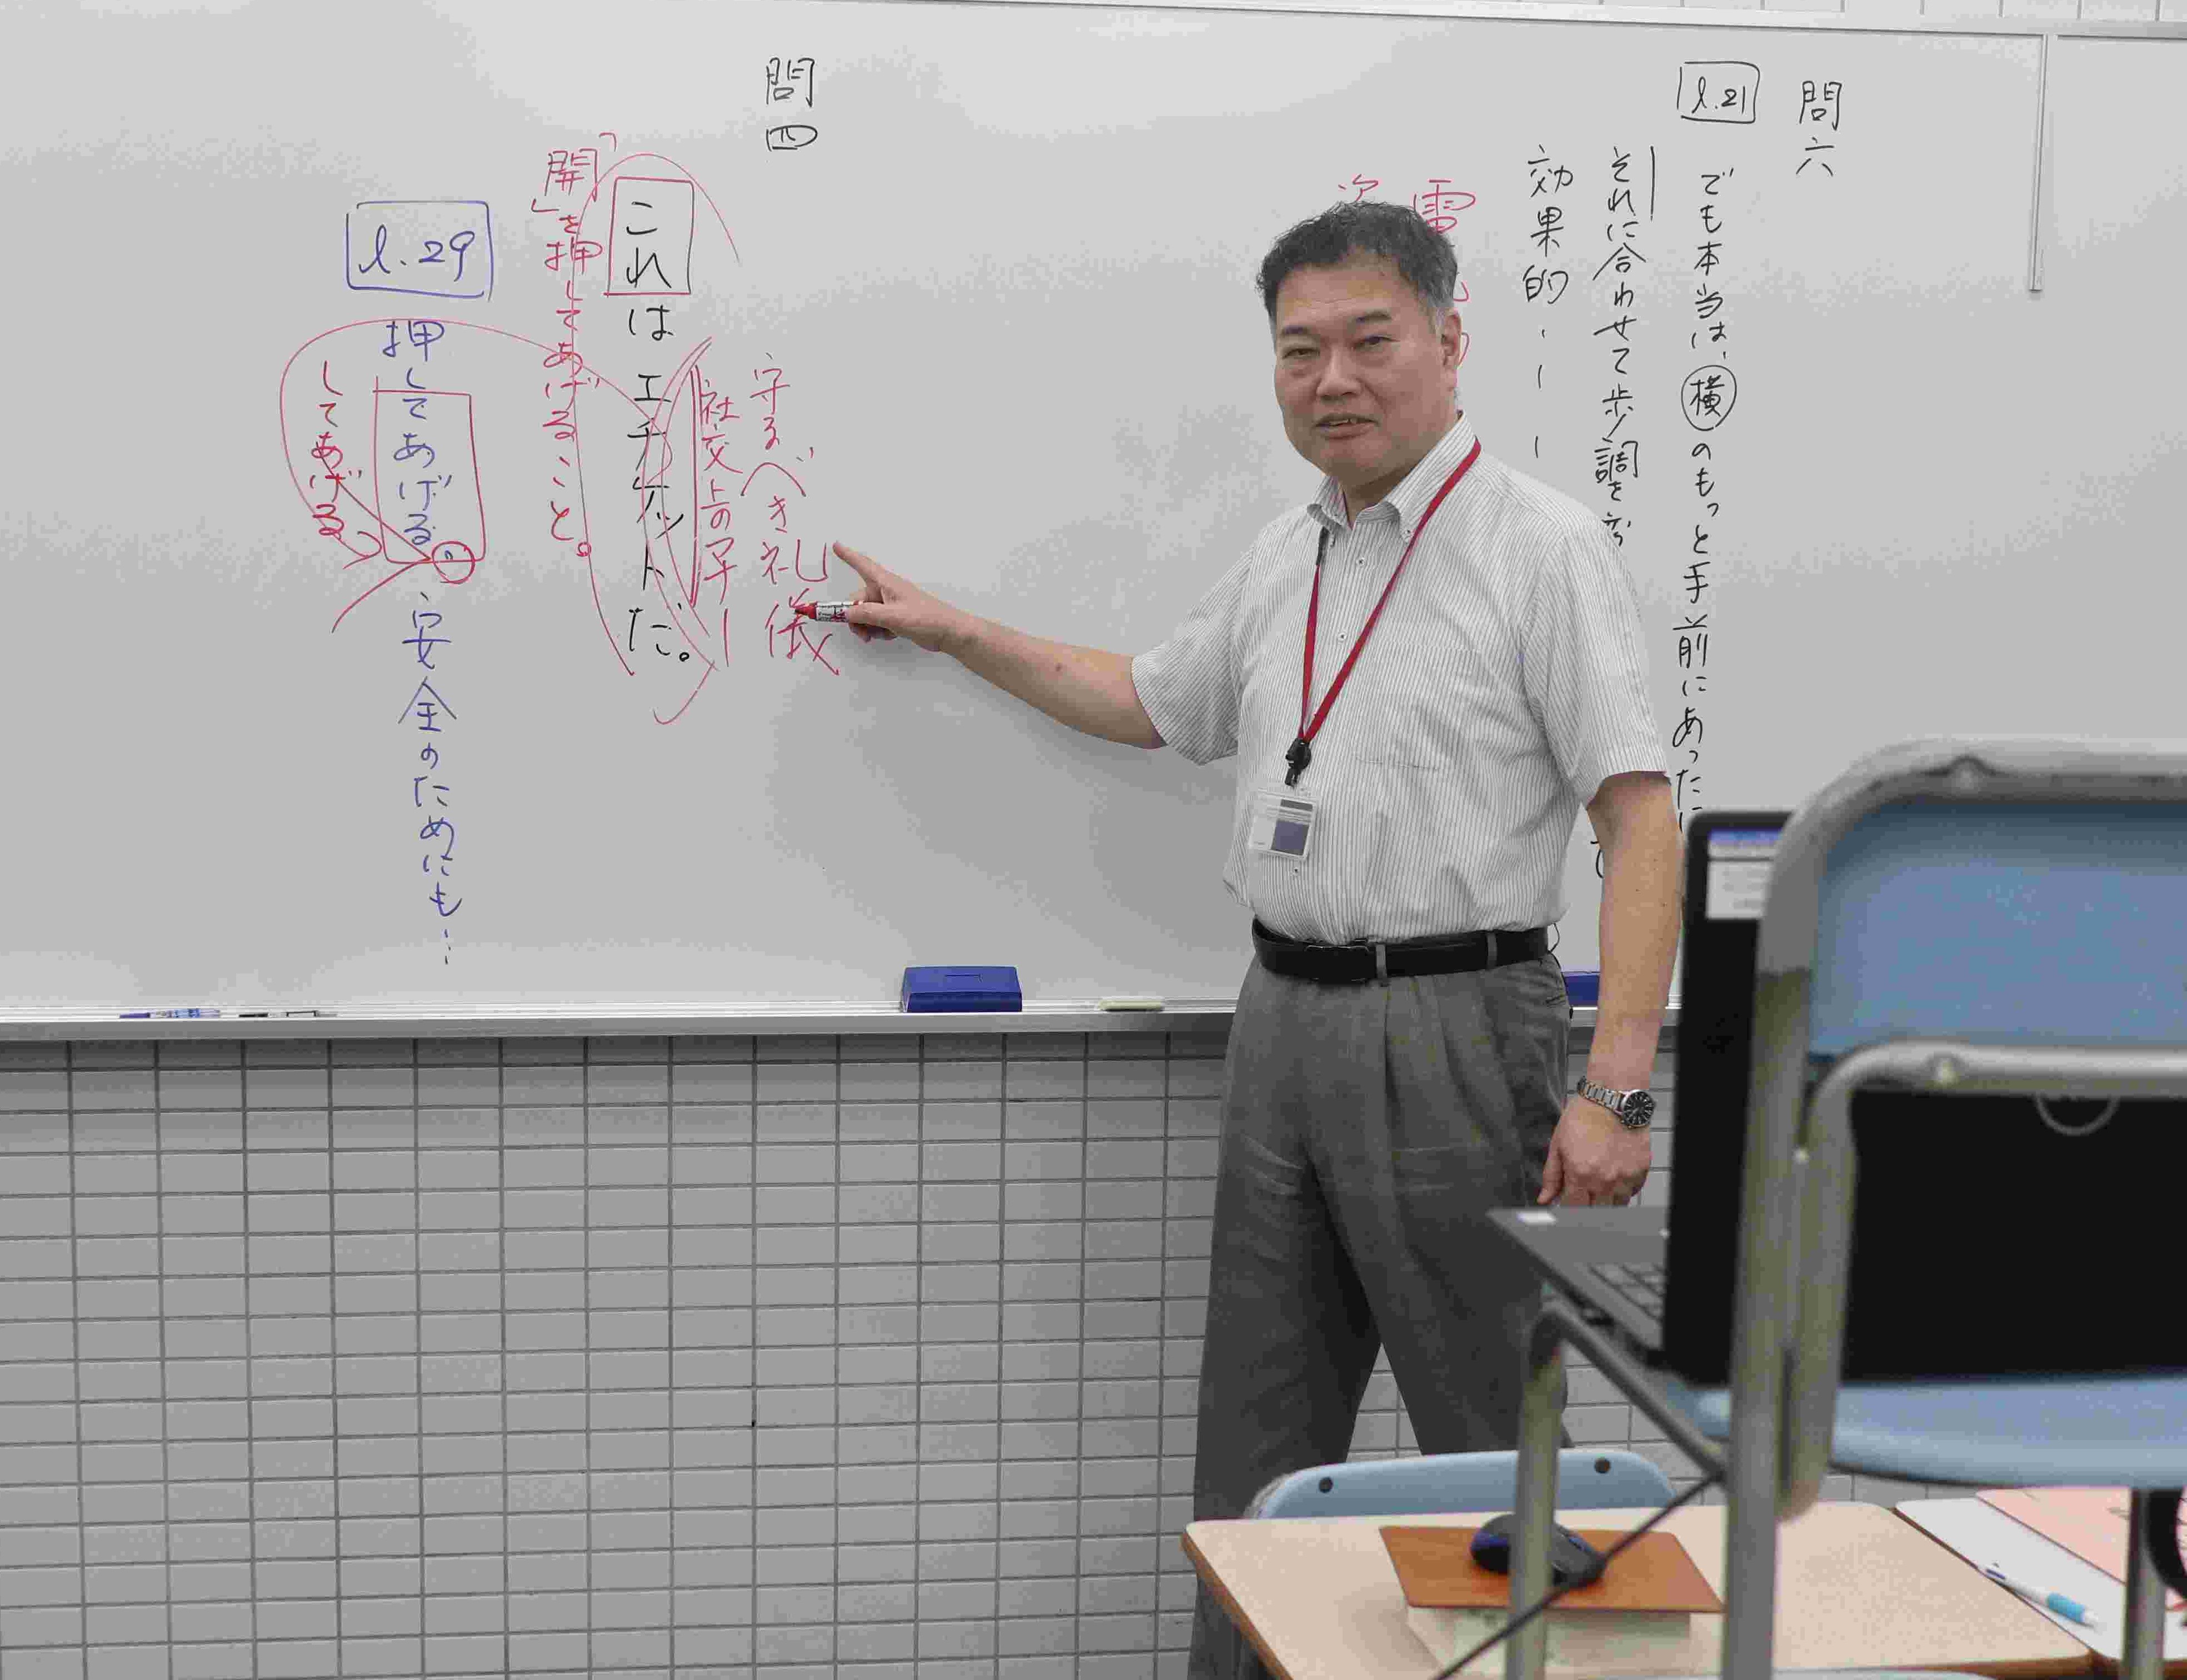 問六
l.21
でも本当は、横のもっと手前にあった
それに合わせて歩調を
効果的
電
次
問四
守るべき礼儀
社交上のマナー
これはエチケットだ。
「開」を押してあげること。
l.29
押してあげる。安全のためにも…
してあげる